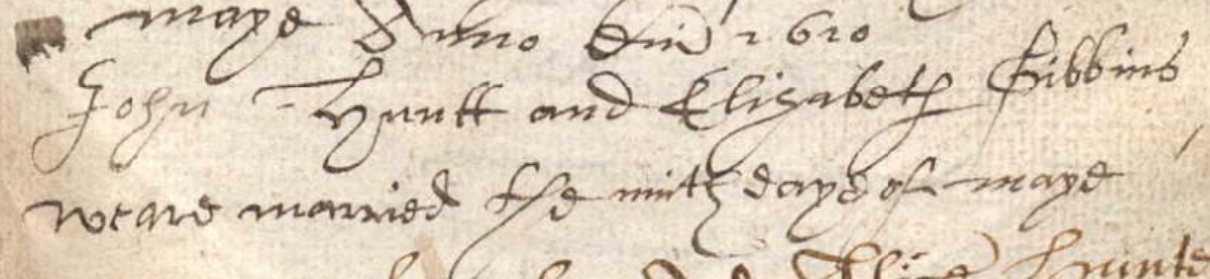 maye Anno dni 1610
John Huntt and Elizabeth Gibbins
weare married the ninth daye of maye
Alice Hunte